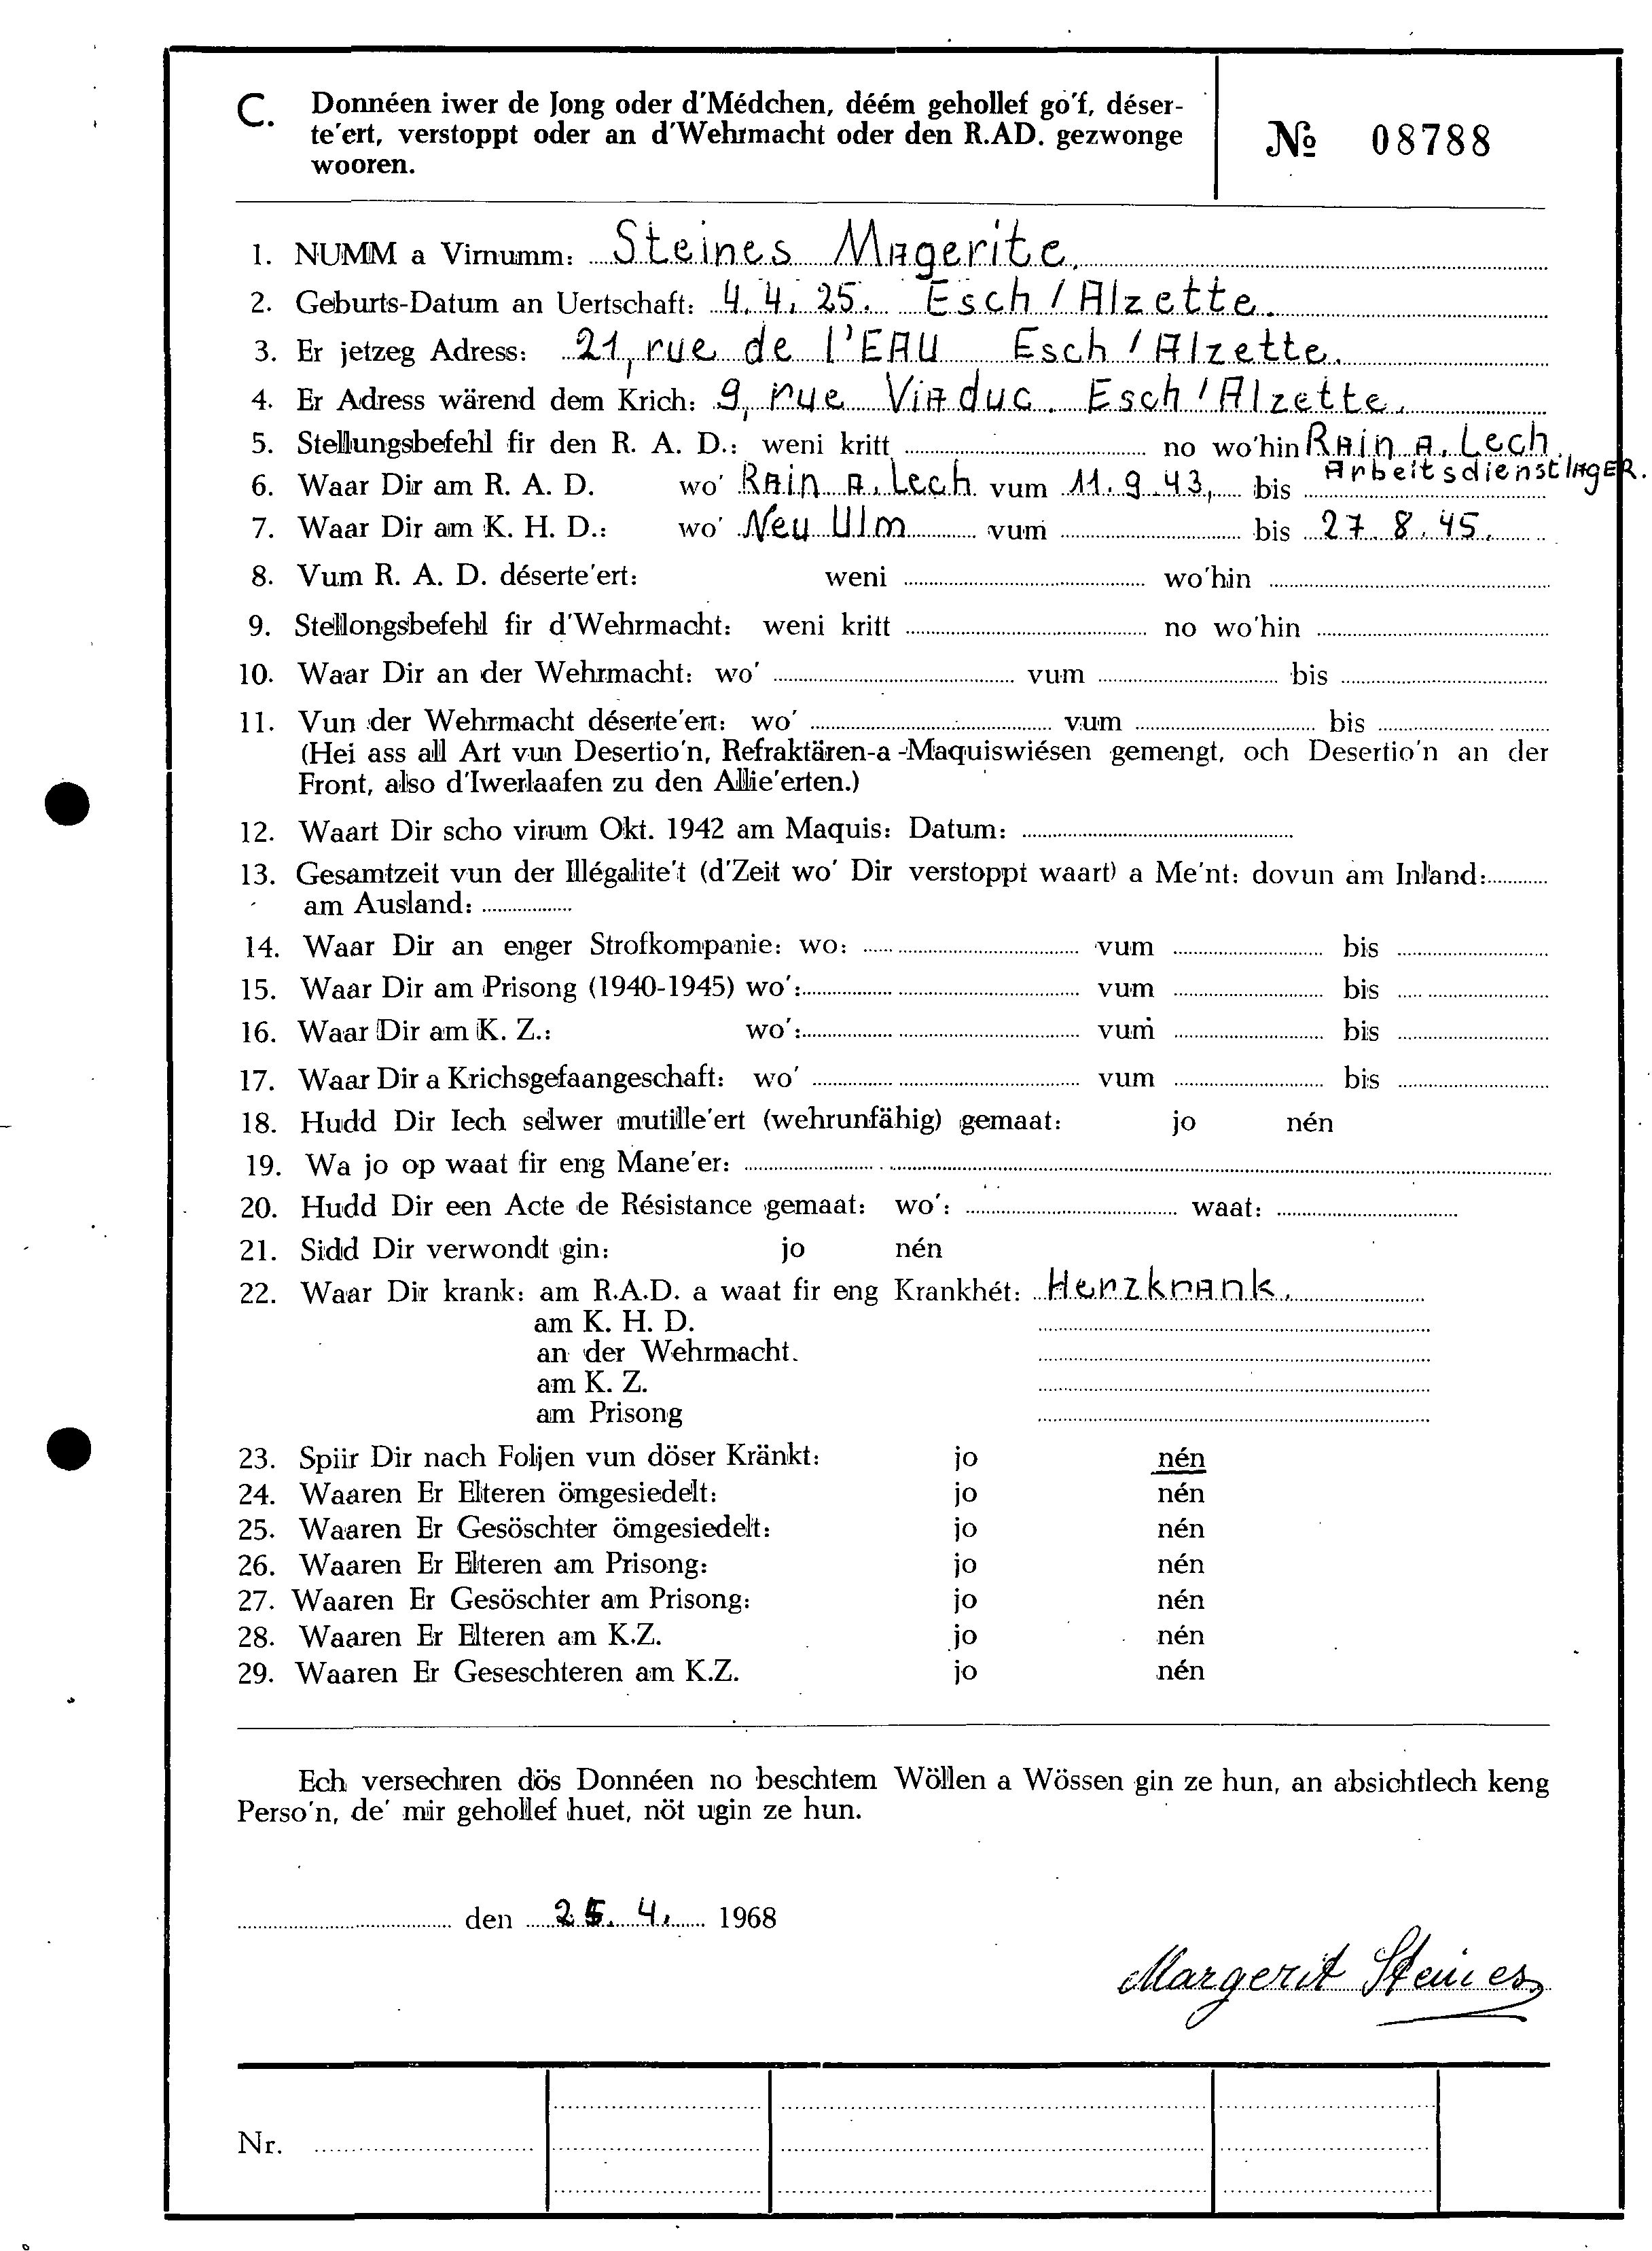 C. Donnéen iwer de Jong oder d'Médchen, déém gehollef go'f, déser-
te'ert, verstoppt oder an d'Wehrmacht oder den R.AD. gezwonge
wooren.
№ 08788
1. NUMM a Virnumm: Steines Magerite.
2. Geburts-Datum an Uertschaft: 4.4.25. Esch/Alzette.
3. Er jetzeg Adress: 21, rue de l'EAU Esch/Alzette.
4. Er Adress wärend dem Krich: 9, rue Viaduc. Esch/Alzette.
5. Stellungsbefehl fir den R. A. D.: weni kritt no wo'hin Rain A. Lech.
Arbeitsdienstlager.
6. Waar Dir am R. A. D. wo' Rain A. Lech vum 11.9.43, bis
7. Waar Dir am K. H. D.: wo' Neu Ulm vum bis 27.8.45.
8. Vum R. A. D. déserte'ert: weni wo'hin
9. Stellongsbefehl fir d'Wehrmacht: weni kritt no wo'hin
10. Waar Dir an der Wehrmacht: wo' vum bis
11. Vun der Wehrmacht déserte'ert: wo' vum bis
(Hei ass all Art vun Desertio'n, Refraktären-a-Maquiswiésen gemengt, och Desertio'n an der
Front, also d'Iwerlaafen zu den Allie'erten.)
12. Waart Dir scho virum Okt. 1942 am Maquis: Datum:
13. Gesamtzeit vun der Illégalite't (d'Zeit wo' Dir verstoppt waart) a Me'nt: dovun am Inland:
am Ausland:
14. Waar Dir an enger Strofkompanie: wo: vum bis
15. Waar Dir am Prisong (1940-1945) wo': vum bis
16. Waar Dir am K. Z.: wo': vum bis
17. Waar Dir a Krichsgefaangeschaft: wo' vum bis
18. Hudd Dir Iech selwer mutille'ert (wehrunfähig) gemaat: jo nén
19. Wa jo op waat fir eng Mane'er:
20. Hudd Dir een Acte de Résistance gemaat: wo': waat:
21. Sidd Dir verwondt gin: jo nén
22. Waar Dir krank: am R.A.D. a waat fir eng Krankhét: Herzkrank.
am K. H. D.
an der Wehrmacht.
am K. Z.
am Prisong
23. Spiir Dir nach Foljen vun döser Kränkt: jo nén
24. Waaren Er Elteren ömgesiedelt: jo nén
25. Waaren Er Gesöschter ömgesiedelt: jo nén
26. Waaren Er Elteren am Prisong: jo nén
27. Waaren Er Gesöschter am Prisong: jo nén
28. Waaren Er Elteren am K.Z. jo nén
29. Waaren Er Geseschteren am K.Z. jo nén
Ech versechren dös Donnéen no beschtem Wöllen a Wössen gin ze hun, an absichtlech keng
Perso'n, de' mir gehollef huet, nöt ugin ze hun.
den 25. 4. 1968
Margerit Steines
Nr.